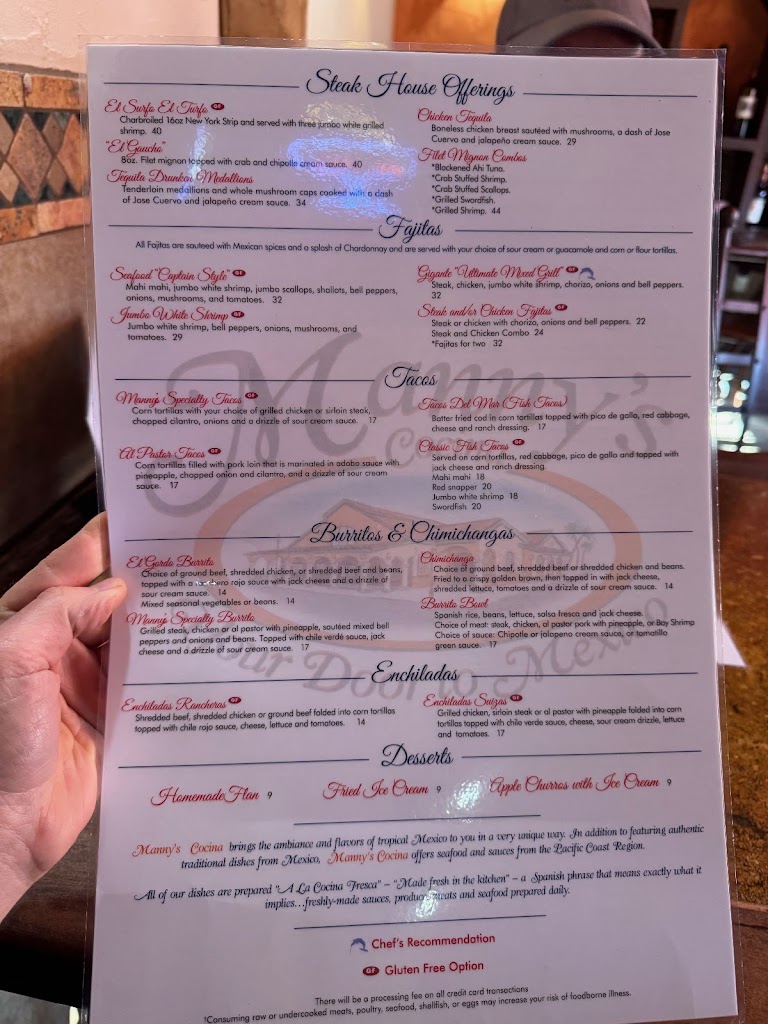 Steak House Offerings
El Surfo El Turfo GF
Charbroiled 16oz New York Strip and served with three jumbo white grilled
shrimp. 40
"El Gaucho"
8oz. Filet mignon topped with crab and chipotle cream sauce. 40
Tequila Drunken Medallions
Tenderloin medallions and whole mushroom caps cooked with a dash
of Jose Cuervo and jalapeño cream sauce. 34
Chicken Tequila
Boneless chicken breast sautéed with mushrooms, a dash of Jose
Cuervo and jalapeño cream sauce. 29
Filet Mignon Combos
*Blackened Ahi Tuna.
*Crab Stuffed Shrimp.
*Crab Stuffed Scallops.
*Grilled Swordfish.
*Grilled Shrimp. 44
Fajitas
All Fajitas are sauteed with Mexican spices and a splash of Chardonnay and are served with your choice of sour cream or guacamole and corn or flour tortillas.
Seafood "Captain Style" GF
Mahi mahi, jumbo white shrimp, jumbo scallops, shallots, bell peppers,
onions, mushrooms, and tomatoes. 32
Jumbo White Shrimp GF
Jumbo white shrimp, bell peppers, onions, mushrooms, and
tomatoes. 29
Gigante "Ultimate Mixed Grill" GF
Steak, chicken, jumbo white shrimp, chorizo, onions and bell peppers.
32
Steak and/or Chicken Fajitas GF
Steak or chicken with chorizo, onions and bell peppers. 22
Steak and Chicken Combo 24
*Fajitas for two 32
Tacos
Manny's Specialty Tacos GF
Corn tortillas with your choice of grilled chicken or sirloin steak,
chopped cilantro, onions and a drizzle of sour cream sauce. 17
Al Pastor Tacos GF
Corn tortillas filled with pork loin that is marinated in adobo sauce with
pineapple, chopped onion and cilantro, and a drizzle of sour cream
sauce. 17
Tacos Del Mar (Fish Tacos)
Batter fried cod in corn tortillas topped with pico de gallo, red cabbage,
cheese and ranch dressing. 17
Classic Fish Tacos GF
Served on corn tortillas, red cabbage, pico de gallo and topped with
jack cheese and ranch dressing
Mahi mahi 18
Red snapper 20
Jumbo white shrimp 18
Swordfish 20
Burritos & Chimichangas
El Gordo Burrito
Choice of ground beef, shredded chicken, or shredded beef and beans,
topped with a ranchero rojo sauce with jack cheese and a drizzle of
sour cream sauce. 14
Mixed seasonal vegetables or beans. 14
Manny's Specialty Burrito
Grilled steak, chicken or al pastor with pineapple, sautéed mixed bell
peppers and onions and beans. Topped with chile verde sauce, jack
cheese and a drizzle of sour cream sauce. 17
Chimichanga
Choice of ground beef, shredded beef or shredded chicken and beans.
Fried to a crispy golden brown, then topped in with jack cheese,
shredded lettuce, tomatoes and a drizzle of sour cream sauce. 14
Burrito Bowl
Spanish rice, beans, lettuce, salsa fresca and jack cheese.
Choice of meat: steak, chicken, al pastor pork with pineapple, or Bay Shrimp
Choice of sauce: Chipotle or jalapeno cream sauce, or tomatillo
green sauce. 17
Enchiladas
Enchiladas Rancheras GF
Shredded beef, shredded chicken or ground beef folded into corn tortillas
topped with chile rojo sauce, cheese, lettuce and tomatoes. 14
Enchiladas Suizas GF
Grilled chicken, sirloin steak or al pastor with pineapple folded into corn
tortillas topped with chile verde sauce, cheese, sour cream drizzle, lettuce
and tomatoes. 17
Desserts
Homemade Flan 9
Fried Ice Cream 9
Apple Churros with Ice Cream 9
Manny's Cocina brings the ambiance and flavors of tropical Mexico to you in a very unique way. In addition to featuring authentic
traditional dishes from Mexico, Manny's Cocina offers seafood and sauces from the Pacific Coast Region.
All of our dishes are prepared "A La Cocina Fresca" – "Made fresh in the kitchen" – a Spanish phrase that means exactly what it
implies...freshly-made sauces, produce, meats and seafood prepared daily.
Chef's Recommendation
GF Gluten Free Option
There will be a processing fee on all credit card transactions
†Consuming raw or undercooked meats, poultry, seafood, shellfish, or eggs may increase your risk of foodborne illness.
Manny's
Your Door to Mexico